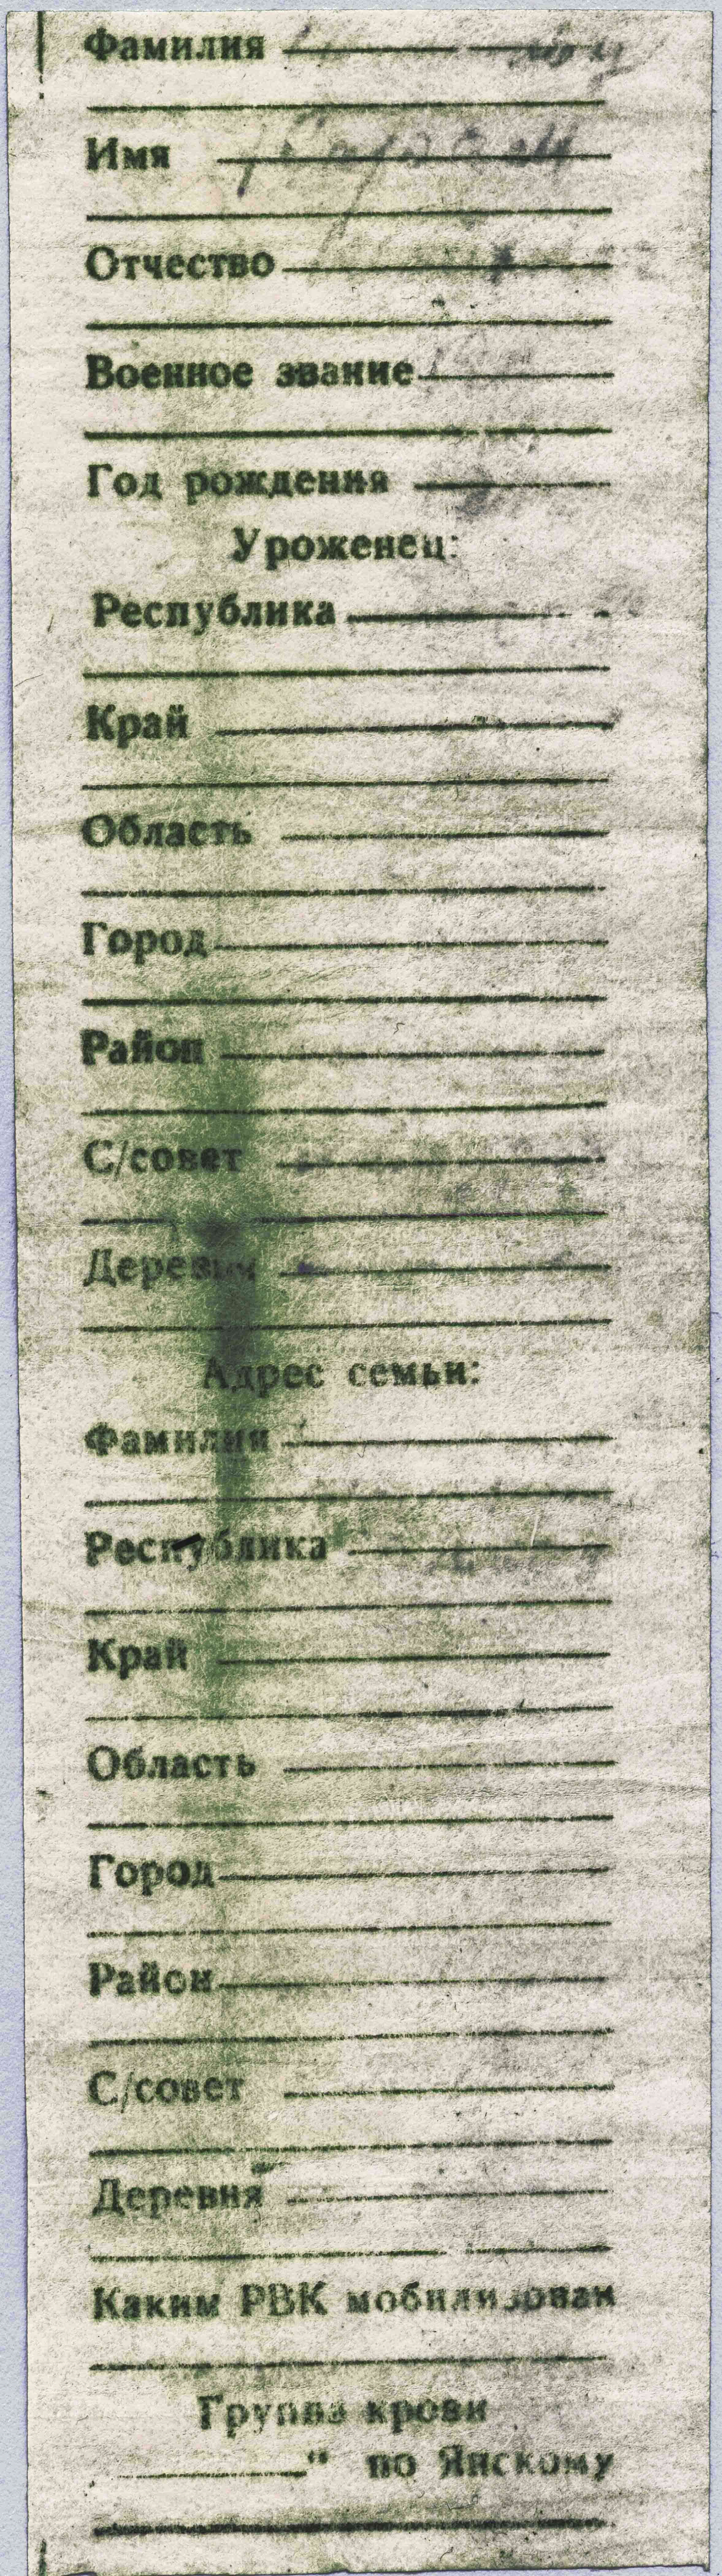 Фамилия
Имя
Отчество
Военное звание
Год рождения
Уроженец:
Республика
Край
Область
Город
Район
С/совет
Деревня
Адрес семьи:
Фамилия
Республика
Край
Область
Город
Район
С/совет
Деревня
Каким РВК мобилизован
Группа крови
“ по Янскому